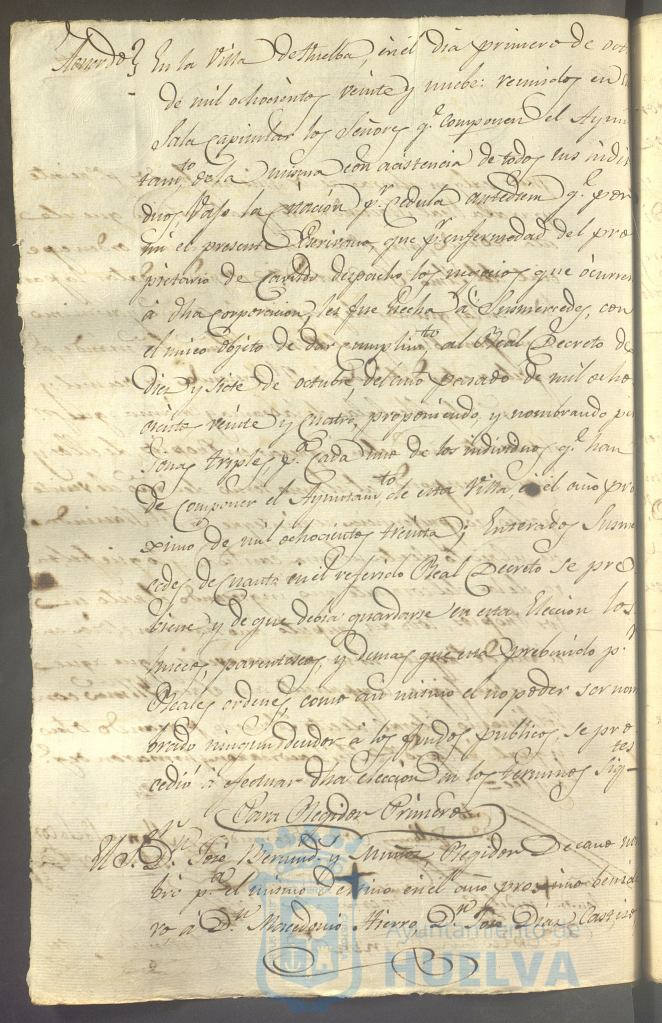 Acuerdo} En la Villa de Huelba, en el dia primero de oct
de mil ochocientos veinte y nuebe: reunidos en
Sala Capitular los Señores q.e componen el Ayun
tam.to de la misma con asistencia de todos sus indivi
duos, vajo la citación p.r cedula antediem q.e por
mi el presente Escrivano, que p.r enfermedad del pro
pietario de Cavildo despacho los negocios que ocurren
á dha corporacion, les fue hecha á Susmercedes, con
el unico objeto de dar cumplim.to al Real Decreto de
Diez y siete de octubre, del año pasado de mil ocho
cientos veinte y cuatro, proponiendo, y nombrando per
sonas triples, p.a cada uno de los individuos q.e han
de componer el Ayuntam.to de esta Villa, en el año pro
ximo de mil ochocientos treinta; Enterados Susmer
cedes de cuanto en el referido Real Decreto se pre
biene, y de que debia guardarse en esta Eleccion los
huecos, parentescos, y demas que está prebenido p.r
Reales ordenes, como asi mismo el no poder ser nom
brado ningun deudor á los fondos publicos, se pro
cedió á efectuar dha eleccion en los terminos sig.tes
Para Regidor Primero
El S.r D.n José Bermud.z y Muñoz, Regidor Decano nom
bró p.a el mismo Destino en el año proximo benide
ro á D.n Macedonio Hierro, D.n José Diaz, Castino,
Ayuntamiento de
HUELVA